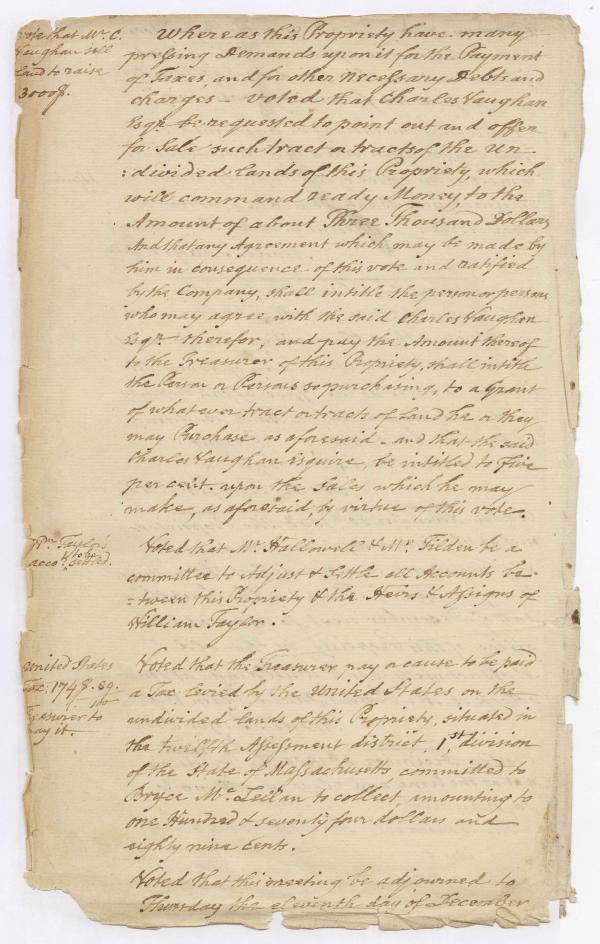 Vote that Mr. C.
Vaughan sell
Land to raise
3000$.
Whereas this Propriety have many
pressing Demands upon it for the Payment
of Taxes, and for other necessary Debts and
charges - voted that Charles Vaughan
Esqr. be requested to point out and offer
for Sale such tract or tracts of the Un
:divided Lands of this Propriety, which
will command ready Money, to the
Amount of about Three Thousand Dollars
And that any Agreement which may be made by
him in consequence of this vote and ratified
by the Company, shall intitle the person or persons
who may agree with the said Charles Vaughan
Esqr. therefor, and pay the Amount thereof
to the Treasurer of this Propriety, shall intitle
the Person or Persons so purchasing, to a Grant
of whatever tract or tracts of Land he or they
may Purchase as aforesaid - and that the said
Charles Vaughan Esquire, be intitled to Five
per cent. upon the Sales which he may
make, as aforesaid, by virtue of this vote.
Wm. Taylor's
acco.ts to be settled.
Voted that Mr. Hallowell & Mr. Tilden be a
committee to Adjust & Settle all Accounts be-
-tween this Propriety & the Heirs & Assigns of
William Taylor.
United States
Tax. 174 8.89.
Treasurer to
pay it.
Voted that the Treasurer pay or cause to be paid
a Tax levied by the United States on the
undivided Lands of this Propriety, situated in
the twelfth Assessment district, 1st. division
of the State of Massachusetts committed to
Bryce Mc. Lellan to collect, amounting to
one Hundred & seventy four dollars and
eighty nine Cents.
Voted that this meeting be adjourned to
Thursday the eleventh day of December